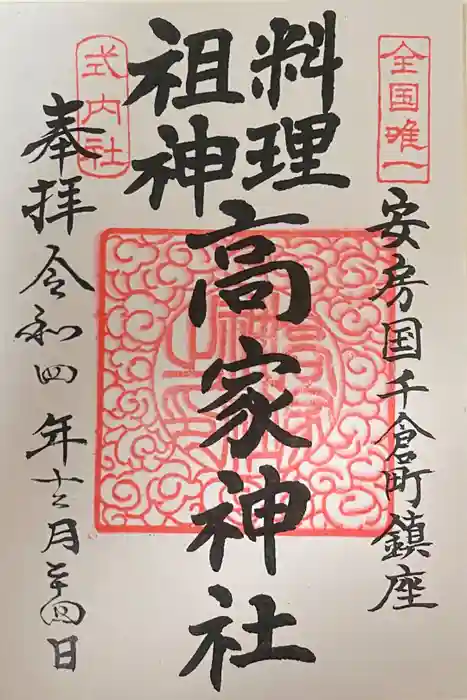 全国唯一
安房国千倉町鎮座
料理
祖神
高家神社
式内社
奉拝
令和四年十二月二十四日